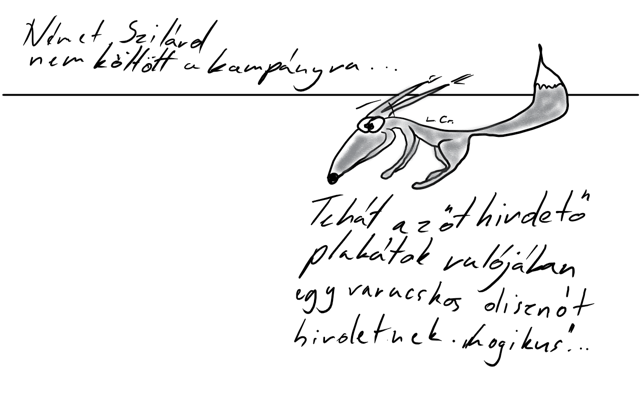 Német Szilárd
nem költött a kampányra...
L Cs.
Tehát az "őt hirdető"
plakátok valójában
egy varacskos disznót
hirdetnek. "Logikus"...